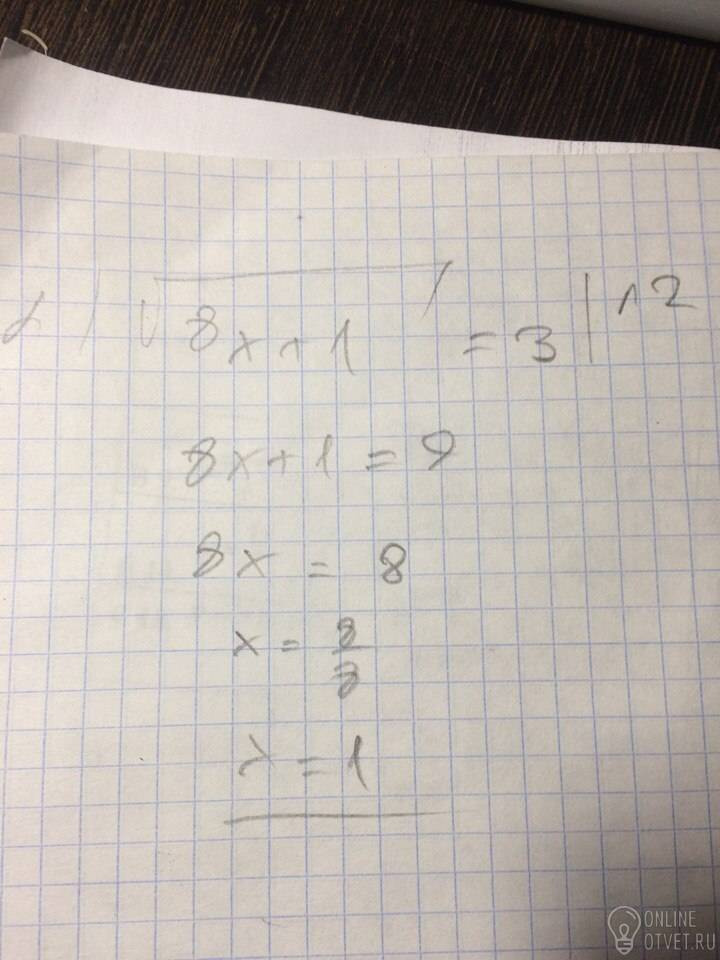 √8x+1 = 3 | ^2
8x+1 = 9
8x = 8
x = 8/8
x = 1
ONLINE
OTVET.RU